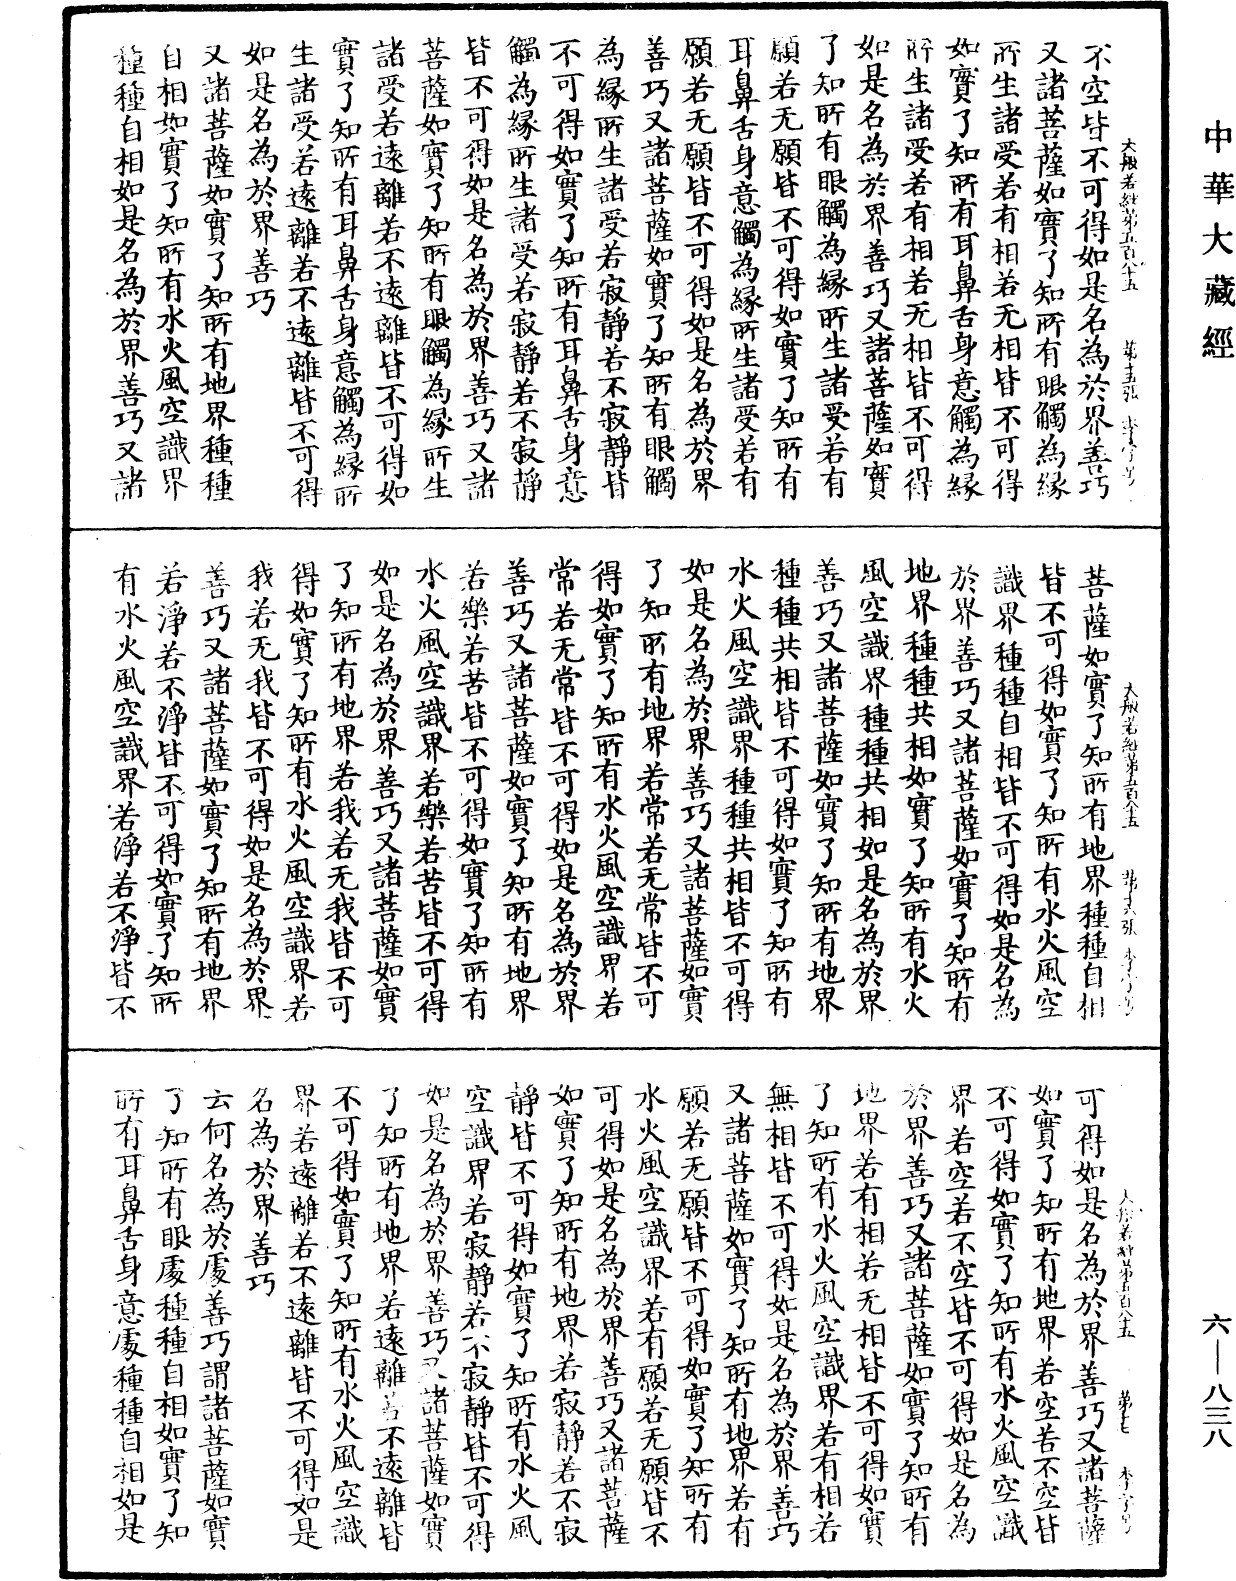 中華大藏經
不空皆不可得如是名為於界善巧
又諸菩薩如實了知所有眼觸為緣
所生諸受若有相若无相皆不可得
如實了知所有耳鼻舌身意觸為緣
所生諸受若有相若无相皆不可得
如是名為於界善巧又諸菩薩如實
了知所有眼觸為緣所生諸受若有
願若无願皆不可得如實了知所有
耳鼻舌身意觸為緣所生諸受若有
願若无願皆不可得如是名為於界
善巧又諸菩薩如實了知所有眼觸
為緣所生諸受若寂靜若不寂靜皆
不可得如實了知所有耳鼻舌身意
觸為緣所生諸受若寂靜若不寂靜
皆不可得如是名為於界善巧又諸
菩薩如實了知所有眼觸為緣所生
諸受若遠離若不遠離皆不可得如
實了知所有耳鼻舌身意觸為緣所
生諸受若遠離若不遠離皆不可得
如是名為於界善巧
又諸菩薩如實了知所有地界種種
自相如實了知所有水火風空識界
種種自相如是名為於界善巧又諸
大般若經第五百八十五 第十五張
菩薩如實了知所有地界種種自相
皆不可得如實了知所有水火風空
識界種種自相皆不可得如是名為
於界善巧又諸菩薩如實了知所有
地界種種共相如實了知所有水火
風空識界種種共相如是名為於界
善巧又諸菩薩如實了知所有地界
種種共相皆不可得如實了知所有
水火風空識界種種共相皆不可得
如是名為於界善巧又諸菩薩如實
了知所有地界若常若无常皆不可
得如實了知所有水火風空識界若
常若无常皆不可得如是名為於界
善巧又諸菩薩如實了知所有地界
若樂若苦皆不可得如實了知所有
水火風空識界若樂若苦皆不可得
如是名為於界善巧又諸菩薩如實
了知所有地界若我若无我皆不可
得如實了知所有水火風空識界若
我若无我皆不可得如是名為於界
善巧又諸菩薩如實了知所有地界
若淨若不淨皆不可得如實了知所
有水火風空識界若淨若不淨皆不
大般若經第五百八十五 第十六張
可得如是名為於界善巧又諸菩薩
如實了知所有地界若空若不空皆
不可得如實了知所有水火風空識
界若空若不空皆不可得如是名為
於界善巧又諸菩薩如實了知所有
地界若有相若无相皆不可得如實
了知所有水火風空識界若有相若
無相皆不可得如是名為於界善巧
又諸菩薩如實了知所有地界若有
願若无願皆不可得如實了知所有
水火風空識界若有願若无願皆不
可得如是名為於界善巧又諸菩薩
如實了知所有地界若寂靜若不寂
靜皆不可得如實了知所有水火風
空識界若寂靜若不寂靜皆不可得
如是名為於界善巧又諸菩薩如實
了知所有地界若遠離若不遠離皆
不可得如實了知所有水火風空識
界若遠離若不遠離皆不可得如是
名為於界善巧
云何名為於處善巧謂諸菩薩如實
了知所有眼處種種自相如實了知
所有耳鼻舌身意處種種自相如是
大般若經第五百八十五
六—八三八